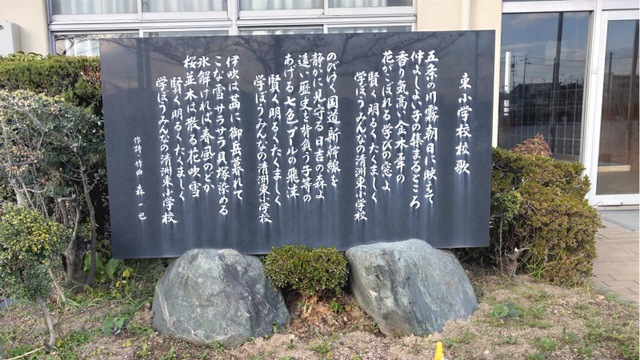 東小学校校歌
五条の川霧朝日に映えて
仲よしよい子の集まるところ
香り気高い金木犀の
花こぼれる学びの窓よ
賢く明るくたくましく
学ぼうみんなの清洲東小学校
のびゆく国道新幹線を
静かに見守る日吉の森よ
遠い歴史を背負う子等の
あげる七色プールの飛沫
賢く明るくたくましく
学ぼうみんなの清洲東小学校
伊吹は茜に御岳暮れて
こな雪サラサラ貝塚染める
氷解ければ春風のどか
桜並木は散る花吹雪
賢く明るくたくましく
学ぼうみんなの清洲東小学校
作詩・作曲 森一也